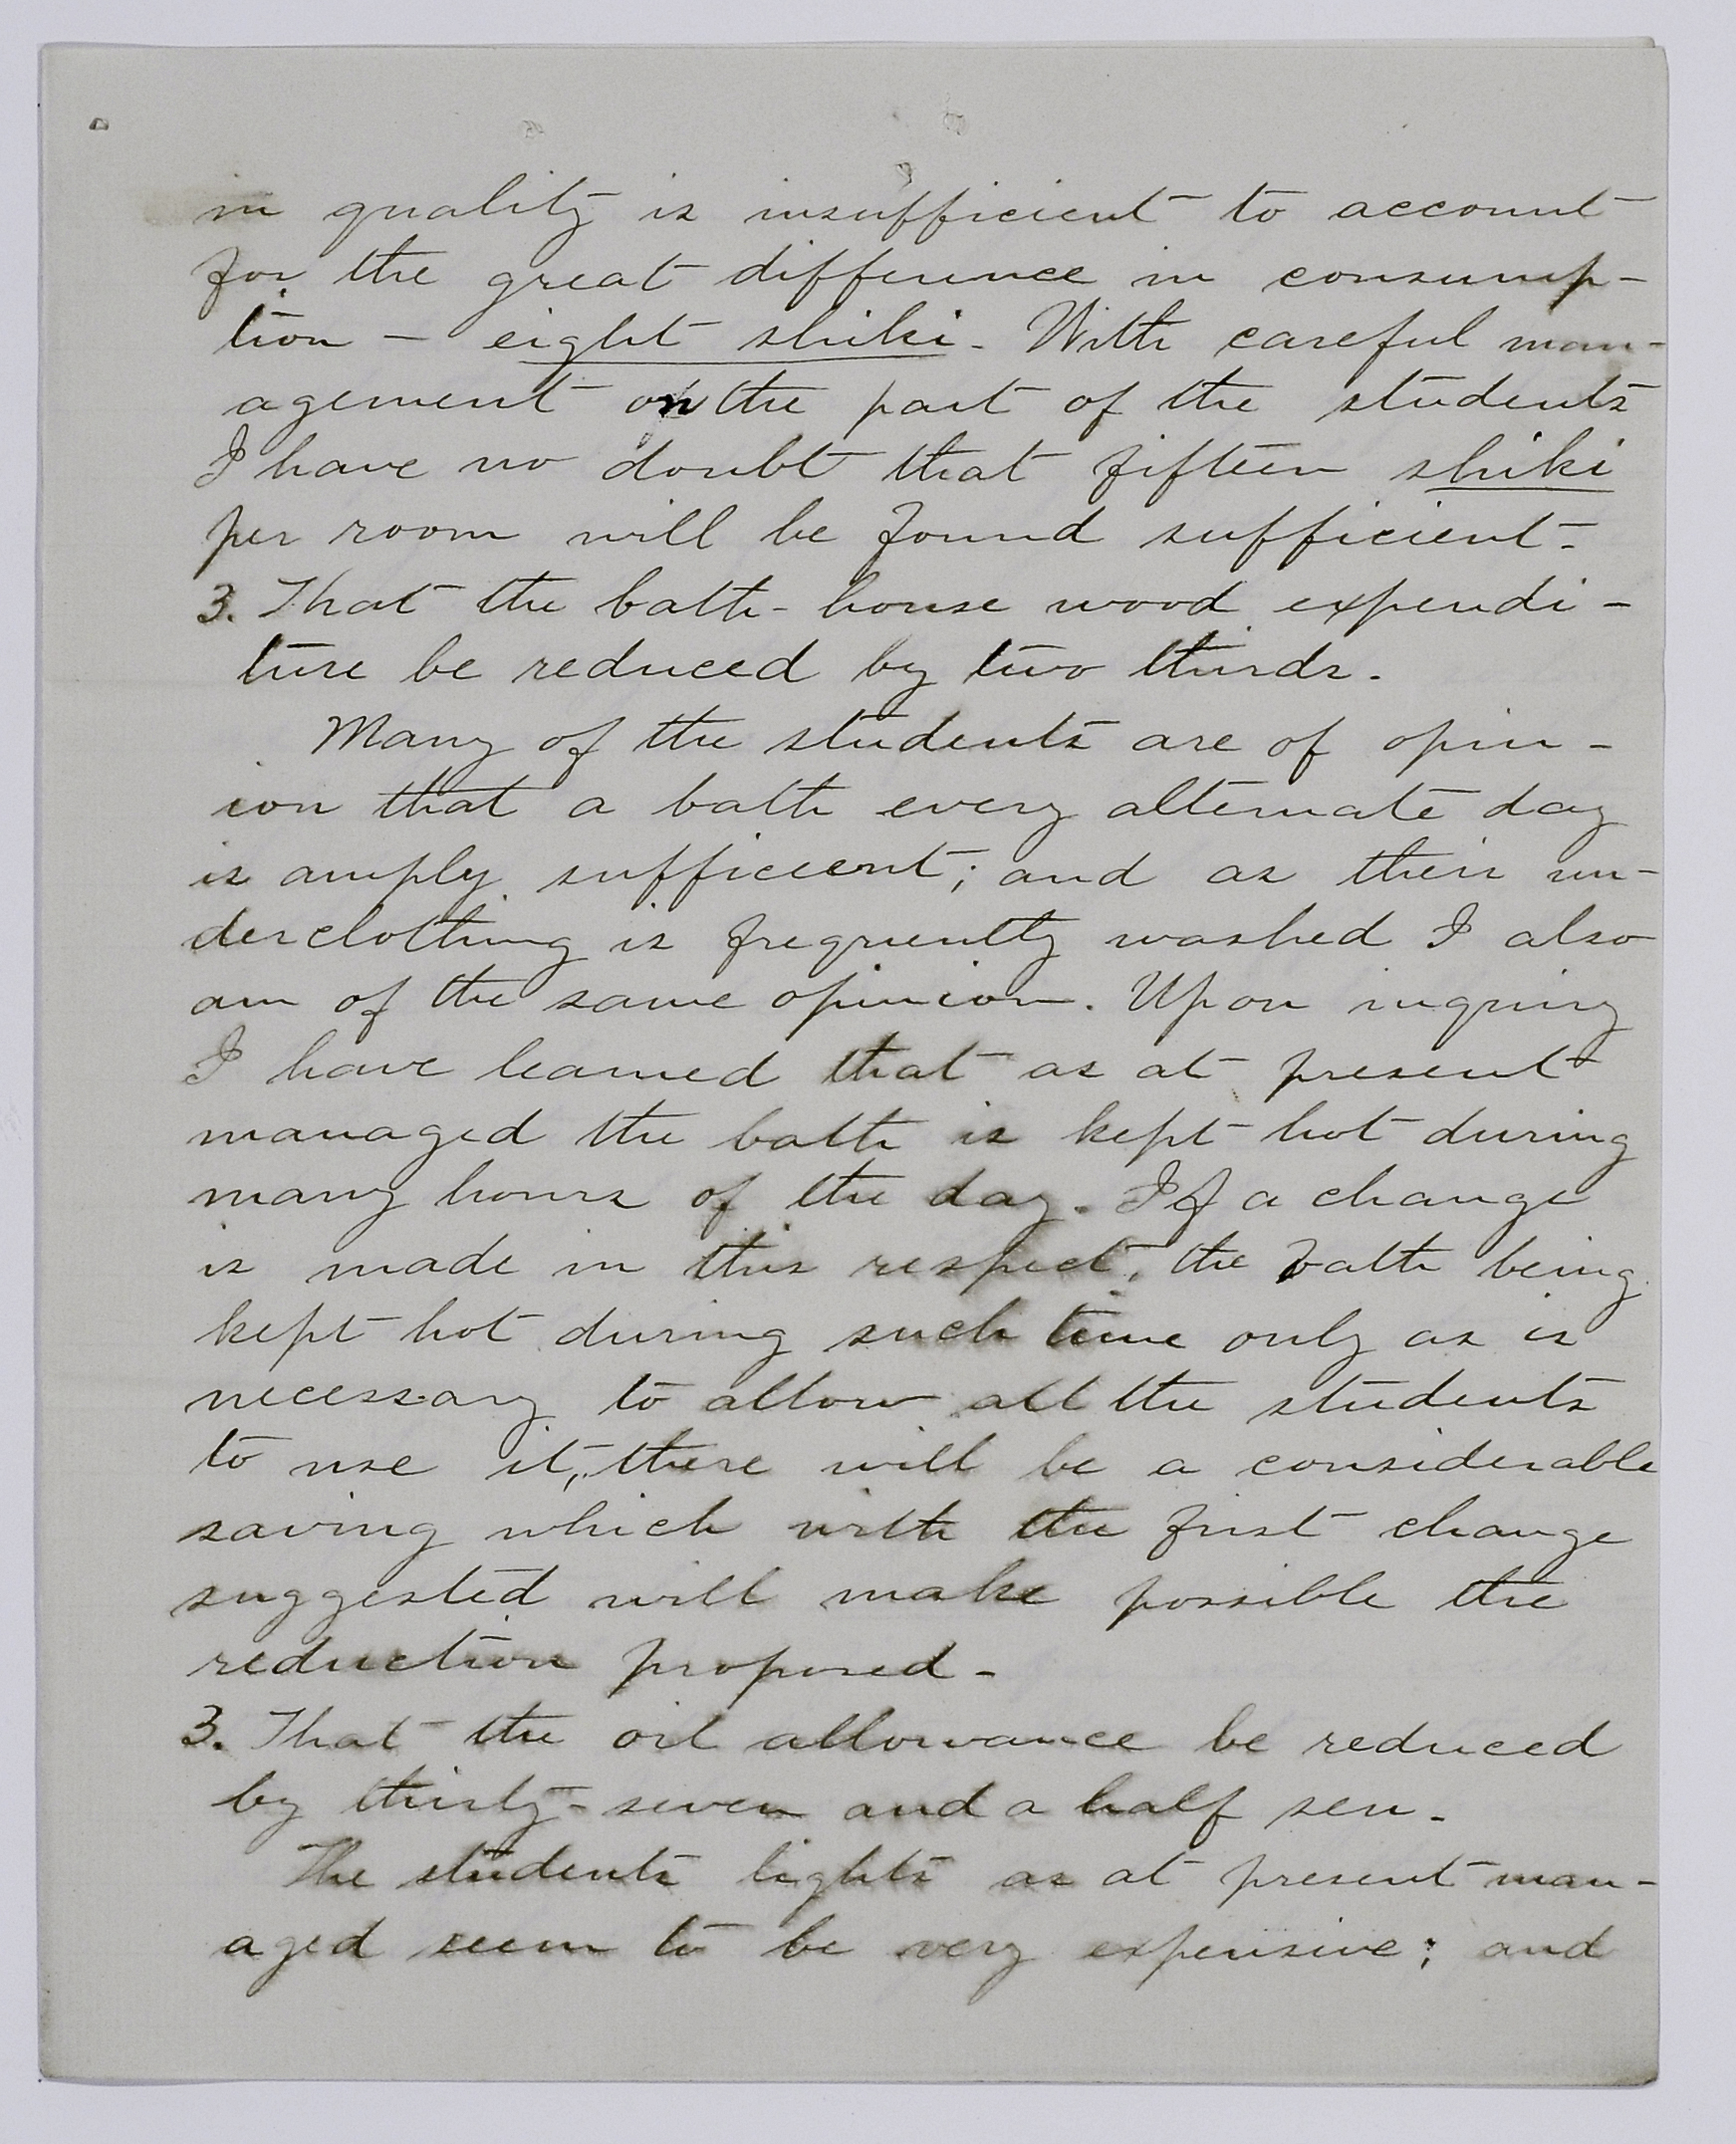 in quality is insufficient to account
for the great difference in consump-
tion - eight shiki. With careful man-
agement on the part of the students
I have no doubt that fifteen shiki
per room will be found sufficient.
3. That the bath-house wood expendi-
ture be reduced by two thirds.
Many of the students are of opin-
ion that a bath every alternate day
is amply sufficient; and as their un-
derclothing is frequently washed I also
am of the same opinion. Upon inquiry
I have learned that as at present
managed the bath is kept hot during
many hours of the day. If a change
is made in this respect, the bath being
kept hot during such time only as is
necessary to allow all the students
to use it, there will be a considerable
saving which with the first change
suggested will make possible the
reduction proposed.
3. That the oil allowance be reduced
by thirty-seven and a half sen.
The students lights as at present man-
aged seem to be very expensive; and